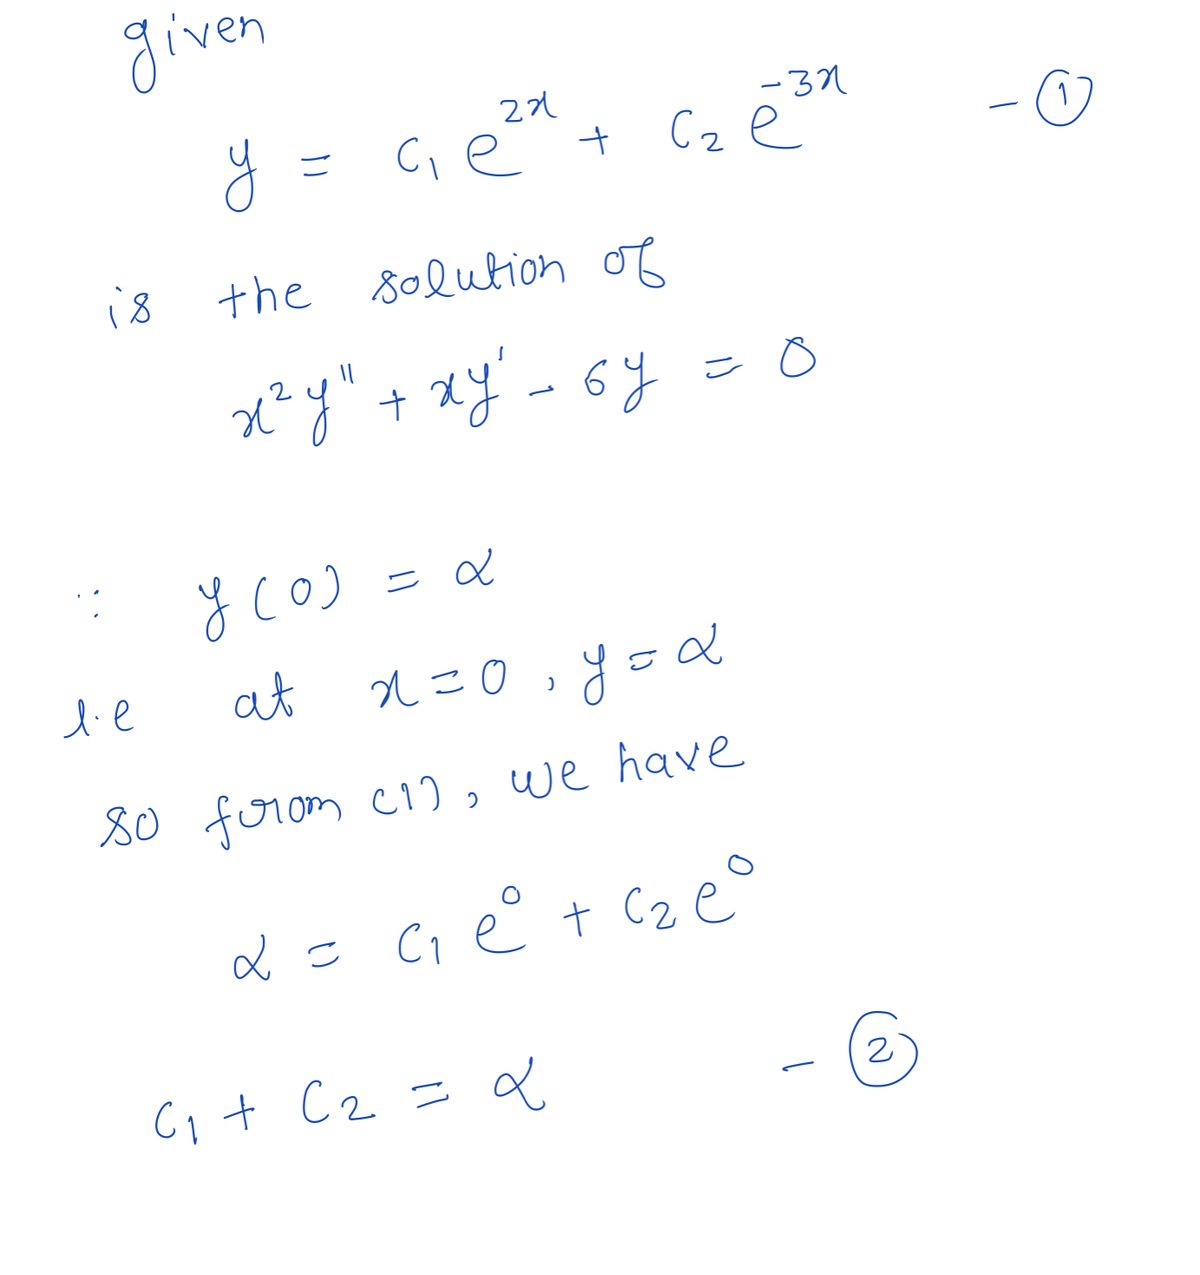 given
y = c₁ e²ˣ + c₂ e⁻³ˣ - ①
is the solution of
x²y'' + xy' - 6y = 0
∵ y(0) = α
i.e at x=0, y=α
so from (1), we have
α = c₁ e⁰ + c₂ e⁰
c₁ + c₂ = α - ②